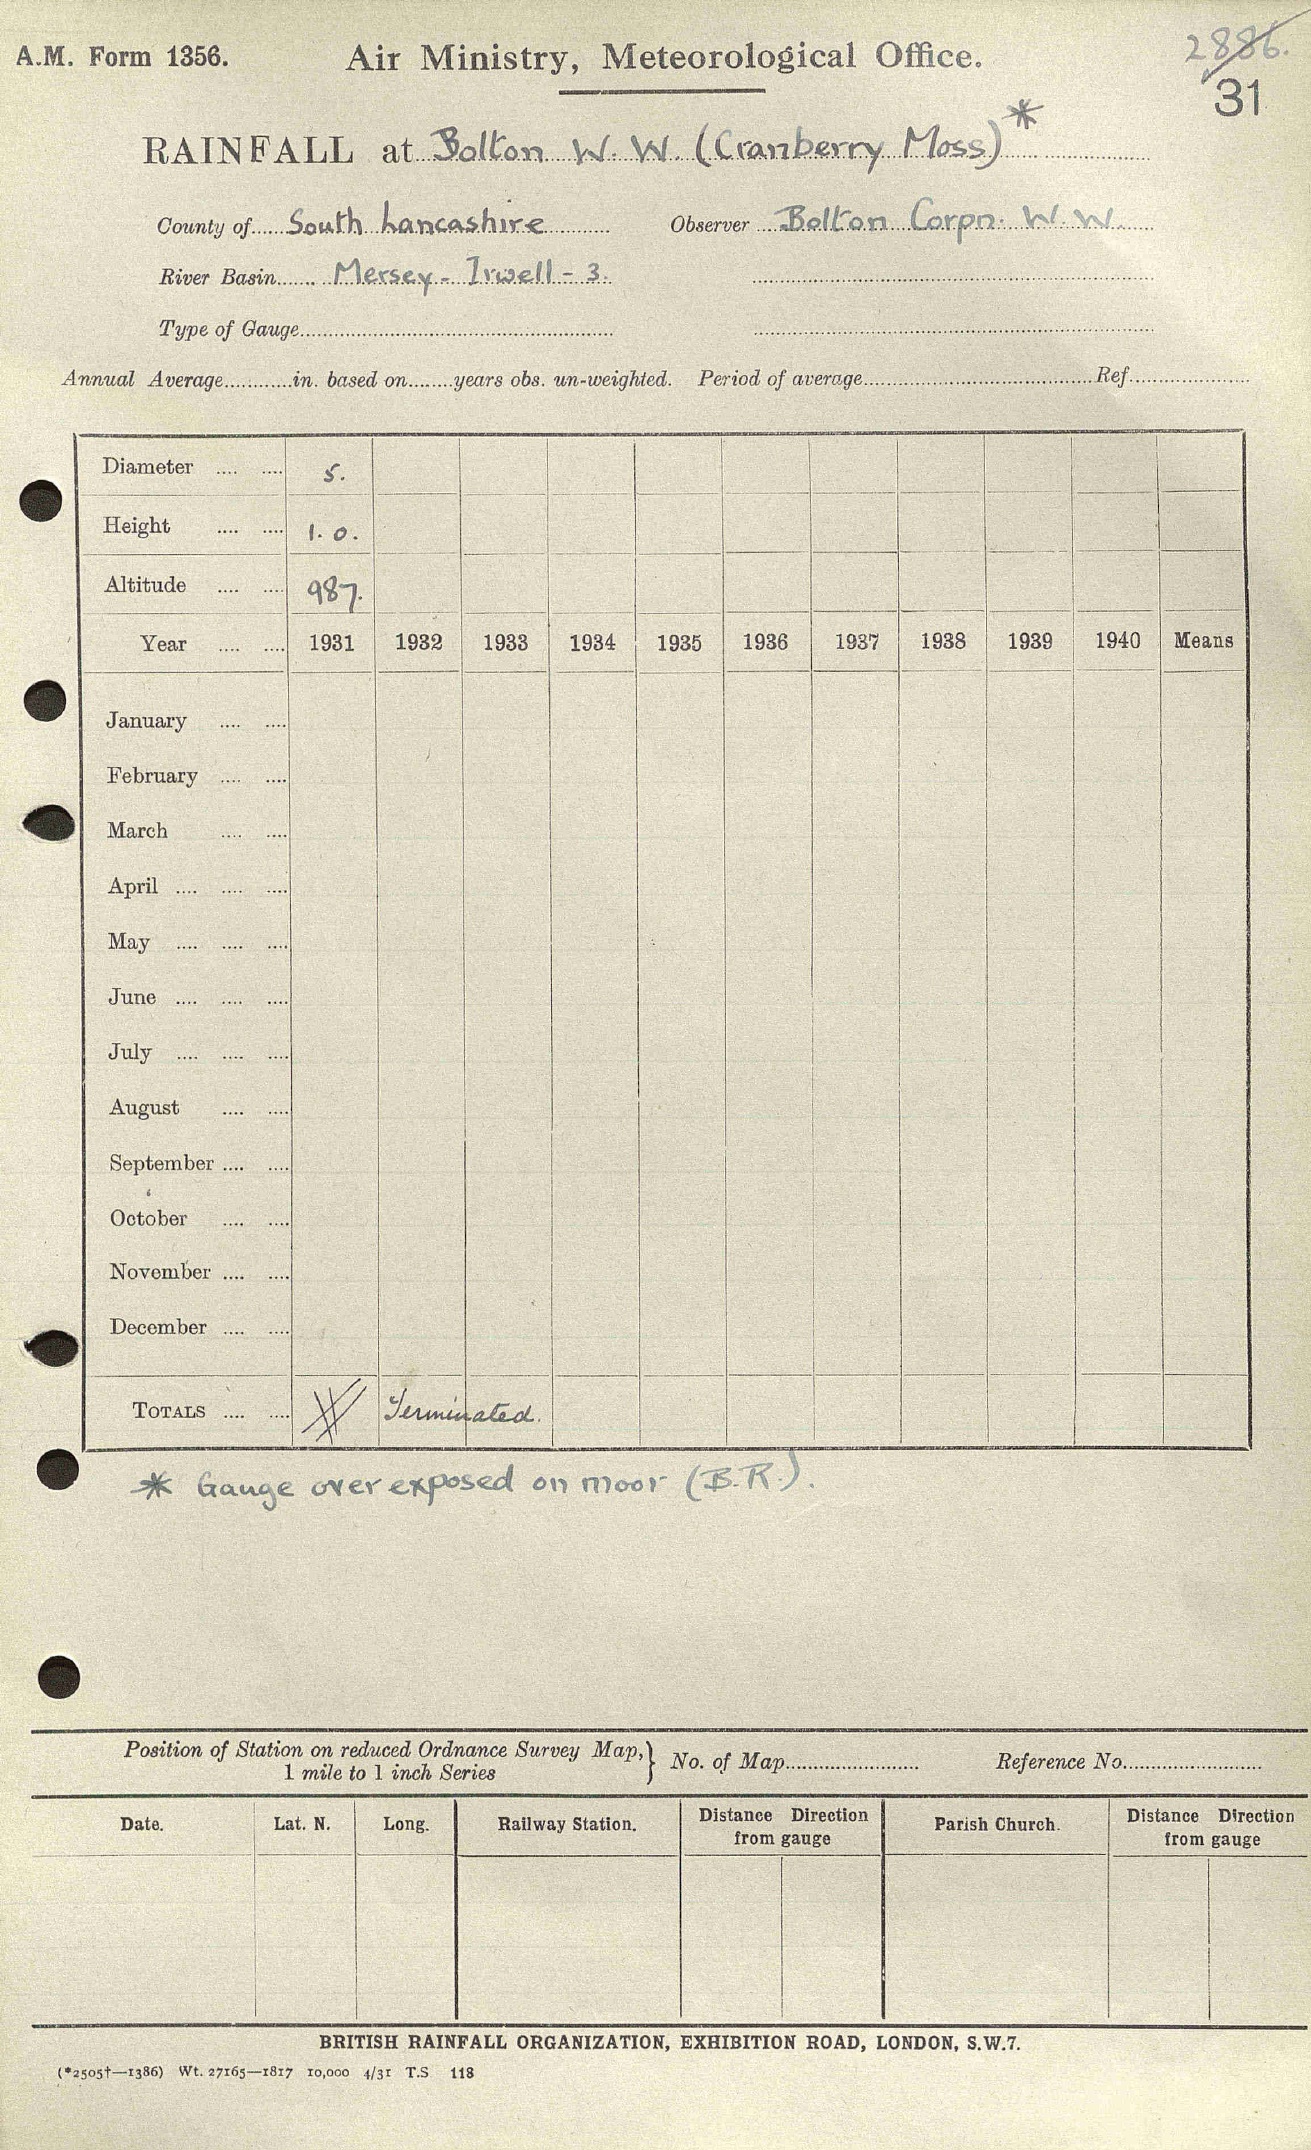 A.M. Form 1356. Air Ministry, Meteorological Office. 2886.
31
RAINFALL at Bolton W. W. (Cranberry Moss) *
County of South Lancashire Observer Bolton Corpn. W. W.
River Basin Mersey - Irwell - 3.
Type of Gauge
Annual Average in. based on years obs. un-weighted. Period of average Ref.
Diameter 5.
Height 1. 0.
Altitude 987.
Year 1931 1932 1933 1934 1935 1936 1937 1938 1939 1940 Means
January
February
March
April
May
June
July
August
September
October
November
December
TOTALS Terminated.
* Gauge over exposed on moor (B.R.).
Position of Station on reduced Ordnance Survey Map, } No. of Map Reference No.
1 mile to 1 inch Series
Date. Lat. N. Long. Railway Station. Distance Direction from gauge Parish Church. Distance Direction from gauge
BRITISH RAINFALL ORGANIZATION, EXHIBITION ROAD, LONDON, S.W.7.
(*2505†—1386) Wt. 27165—1817 10,000 4/31 T.S 118